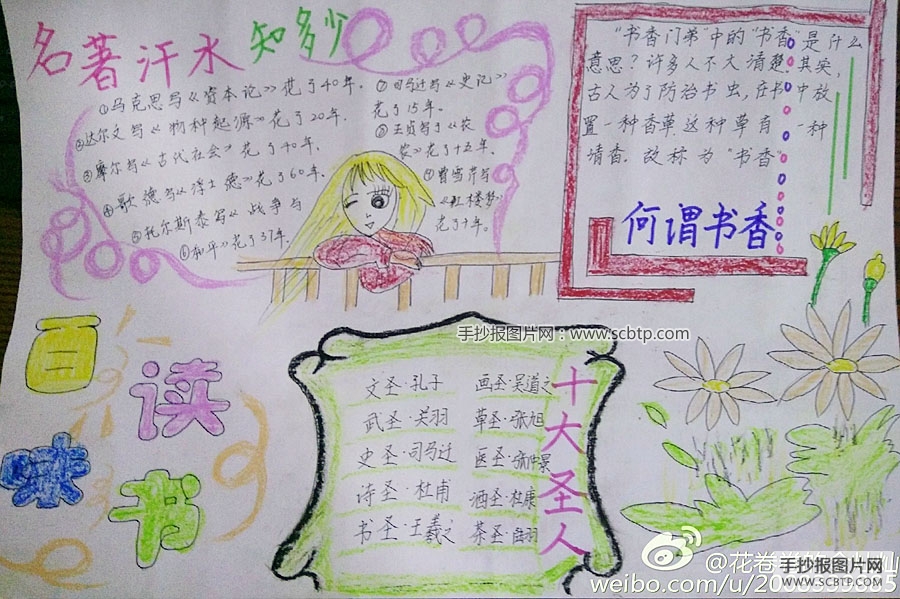 名著汗水知多少
①马克思写《资本论》花了40年.
②达尔文写《物种起源》花了20年.
③摩尔写《古代社会》花了40年.
④歌德写《浮士德》花了60年.
⑤托尔斯泰写《战争与
⑥和平》花了37年.
⑦司马迁写《史记》
花了15年。
⑧王贞写了《农
农》花了十五年。
⑨曹雪芹写
《红楼梦》
花了十年。
“书香门弟”中的“书香”是什么
意思？许多人不大清楚.其实,
古人为了防治书虫,在书中放
置一种香草,这种草有一种
清香.故称为“书香”
何谓书香
百味读书
十大圣人
文圣·孔子
武圣·关羽
史圣·司马迁
诗圣·杜甫
书圣·王羲之
画圣·吴道之
草圣·张旭
医圣·张仲景
酒圣·杜康
茶圣·陆羽
手抄报图片网：www.scbtp.com
weibo.com/u/
手抄报图片网
WWW.SCBTP.COM